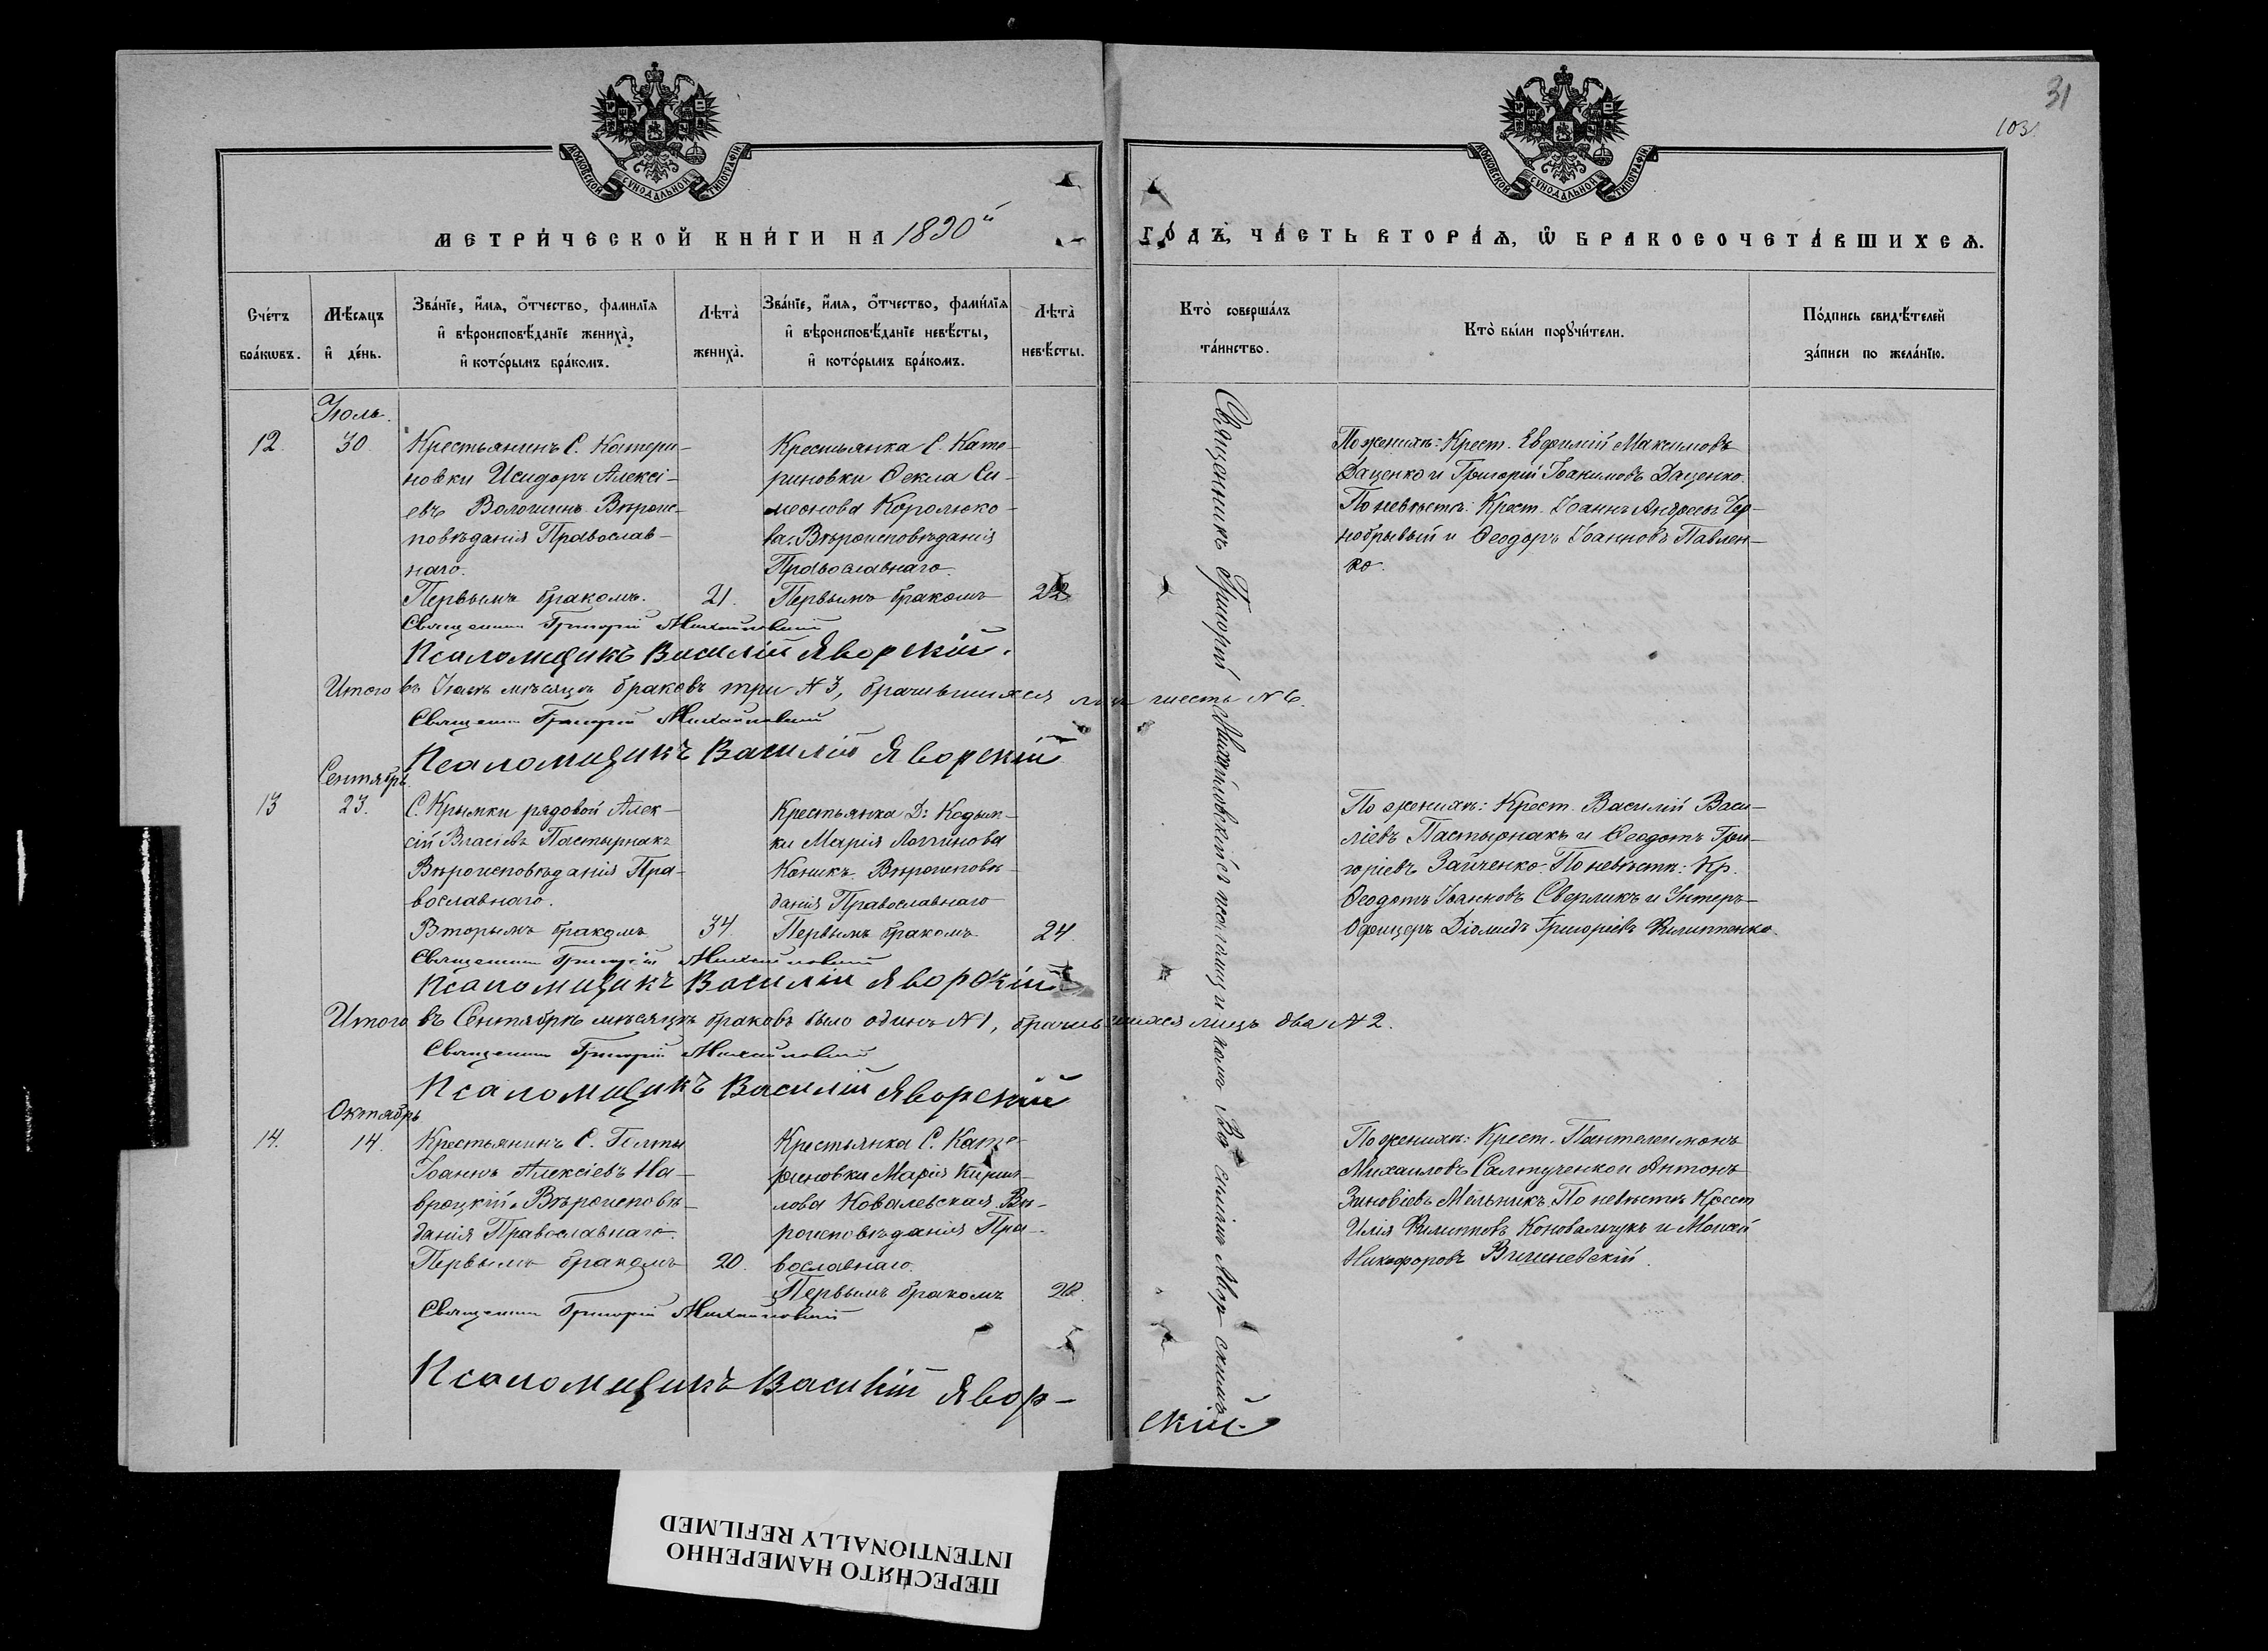 31
103.
МОСКОВСКОЙ СѴНОДАЛЬНОЙ ТИПОГРАФІИ
МОСКОВСКОЙ СѴНОДАЛЬНОЙ ТИПОГРАФІИ
МЕТРИ́ЧЕСКОЙ КНИ́ГИ НА 1890й
ГО́ДЪ, ЧА́СТЬ ВТОРА́Ѧ, Ѽ БРАКОСОЧЕТА́ВШИХСѦ.
Сче́тъ бра́кѡвъ.
Мѣ́сѧцъ и҆ де́нь.
Зва́нїе, и҆́мѧ, ѻ҆́тчество, фами́лїѧ и҆ вѣроисповѣ́данїе жениха̀, и҆ кото́рымъ бра́комъ.
Лѣта̀ жениха̀.
Зва́нїе, и҆́мѧ, ѻ҆́тчество, фами́лїѧ и҆ вѣроисповѣ́данїе невѣ́сты, и҆ кото́рымъ бра́комъ.
Лѣта̀ невѣ́сты.
Кто̀ соверша́лъ та́инство.
Кто̀ бы́ли порꙋчи́тели.
По́дпись свидѣ́телей за́писи по жела́нїю.
Іюль.
12.
30
Крестьянинъ С. Катери-
новки Исидоръ Алексі-
евъ Волошинъ Вѣроис-
повѣданія Православ-
наго.
Первымъ бракомъ.
21.
Крестьянка С. Кате-
риновки Ѳекла Си-
меонова Королюко-
ва. Вѣроисповѣданія
Православнаго.
Первымъ бракомъ
22
По женихѣ: Крест. Евфимій Максимовъ
Даценко и Григорій Іоакимовъ Даценко.
По невѣстѣ: Крест. Іоаннъ Андреевъ Чер-
нобрывый и Ѳеодоръ Іоанновъ Павлен-
ко.
Священникъ Григорій Михайловскій
Псаломщикъ Василій Яворскій.
Итого въ Іюлѣ мѣсяцѣ браковъ три №3, брачившихся лицъ шесть №6.
Священникъ Григорій Михайловскій
Псаломщикъ Василій Яворскій
Сентябрь.
13
23.
С. Крымки рядовой Алек-
сій Власіевъ Пастырнакъ
Вѣроисповѣданія Пра-
вославнаго.
Вторымъ бракомъ
34.
Крестьянка Д: Кодым-
ки Марія Логгинова
Каникъ. Вѣроисповѣ-
данія Православнаго
Первымъ бракомъ
24.
По женихѣ: Крест. Василій Васи-
ліевъ Пастырнакъ и Ѳеодотъ Гри-
горіевъ Зайченко. По невѣстѣ: Кр.
Ѳеодотъ Іоанновъ Сверликъ и Унтеръ-
Офицеръ Діомидъ Григоріевъ Филиппенко.
Священникъ Григорій Михайловскій
Псаломщикъ Василій Яворскій
Итого въ Сентябрѣ мѣсяцѣ браковъ было одинъ №1, брачившихся лицъ два №2.
Священникъ Григорій Михайловскій
Псаломщикъ Василій Яворскій
Октябрь
14.
14.
Крестьянинъ С.
Іоаннъ Алексіевъ На-
вроцкій. Вѣроисповѣ-
данія Православнаго.
Первымъ бракомъ
20.
Крестьянка С. Кате-
риновки Марія Кирил-
лова Ковалевская Вѣ-
роисповѣданія Пра-
вославнаго.
Первымъ бракомъ
По женихѣ: Крест. Пантелеимонъ
Михаиловъ Салтученко и Антонъ
Зиновіевъ Мельникъ. По невѣстѣ Крест
Илія Филипповъ Коновальчукъ и Моисей
Никифоровъ Вишневскій.
Священникъ Григорій Михайловскій
Псаломщикъ Василій Явор-
скій.
Священникъ Григорій Михайловскій съ псаломщикомъ Василіемъ Яворскимъ
ПЕРЕСНЯТО НАМЕРЕННО
INTENTIONALLY REFILMED